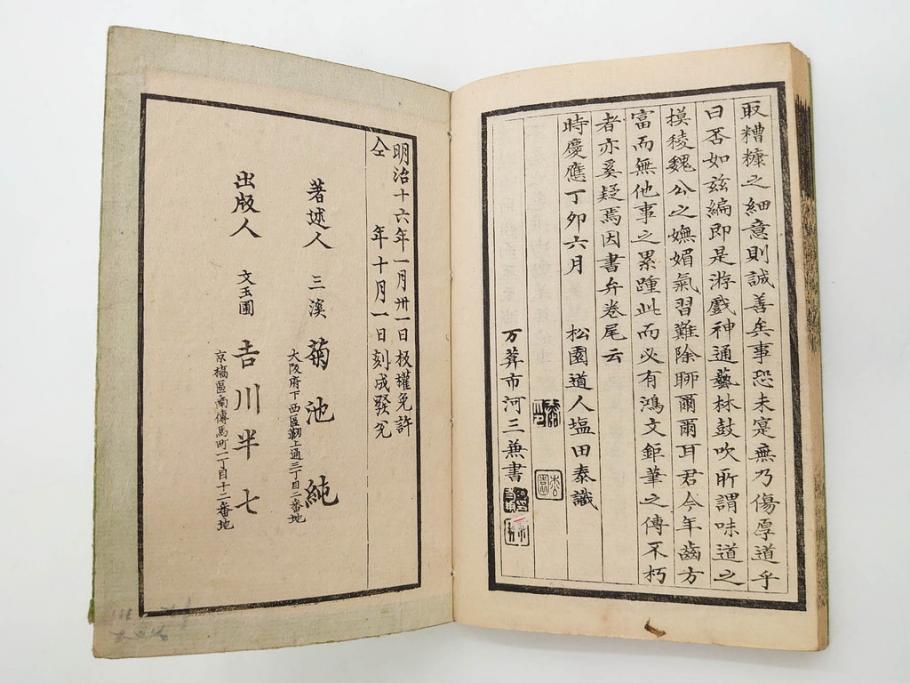 取糟糠之細意則誠善矣事恐未寔無乃傷厚道乎
曰否如茲編即是游戲神通藝林鼓吹所謂味道之
摸稜魏公之嫵媚氣習難除聊爾爾耳君今年齒方
富而無他事之累踵此而必有鴻文鉅筆之傳不朽
者亦奚疑焉因書弁卷尾云
時慶應丁卯六月 松園道人塩田泰識
万葊市河三兼書
明治十六年一月卅一日板權免許
仝 年十月一日刻成發兌
著述人 三溪 菊池純
大阪府下西區靭上通三丁目二番地
出版人 文玉圃 吉川半七
京橋區南傳馬町一丁目十二番地